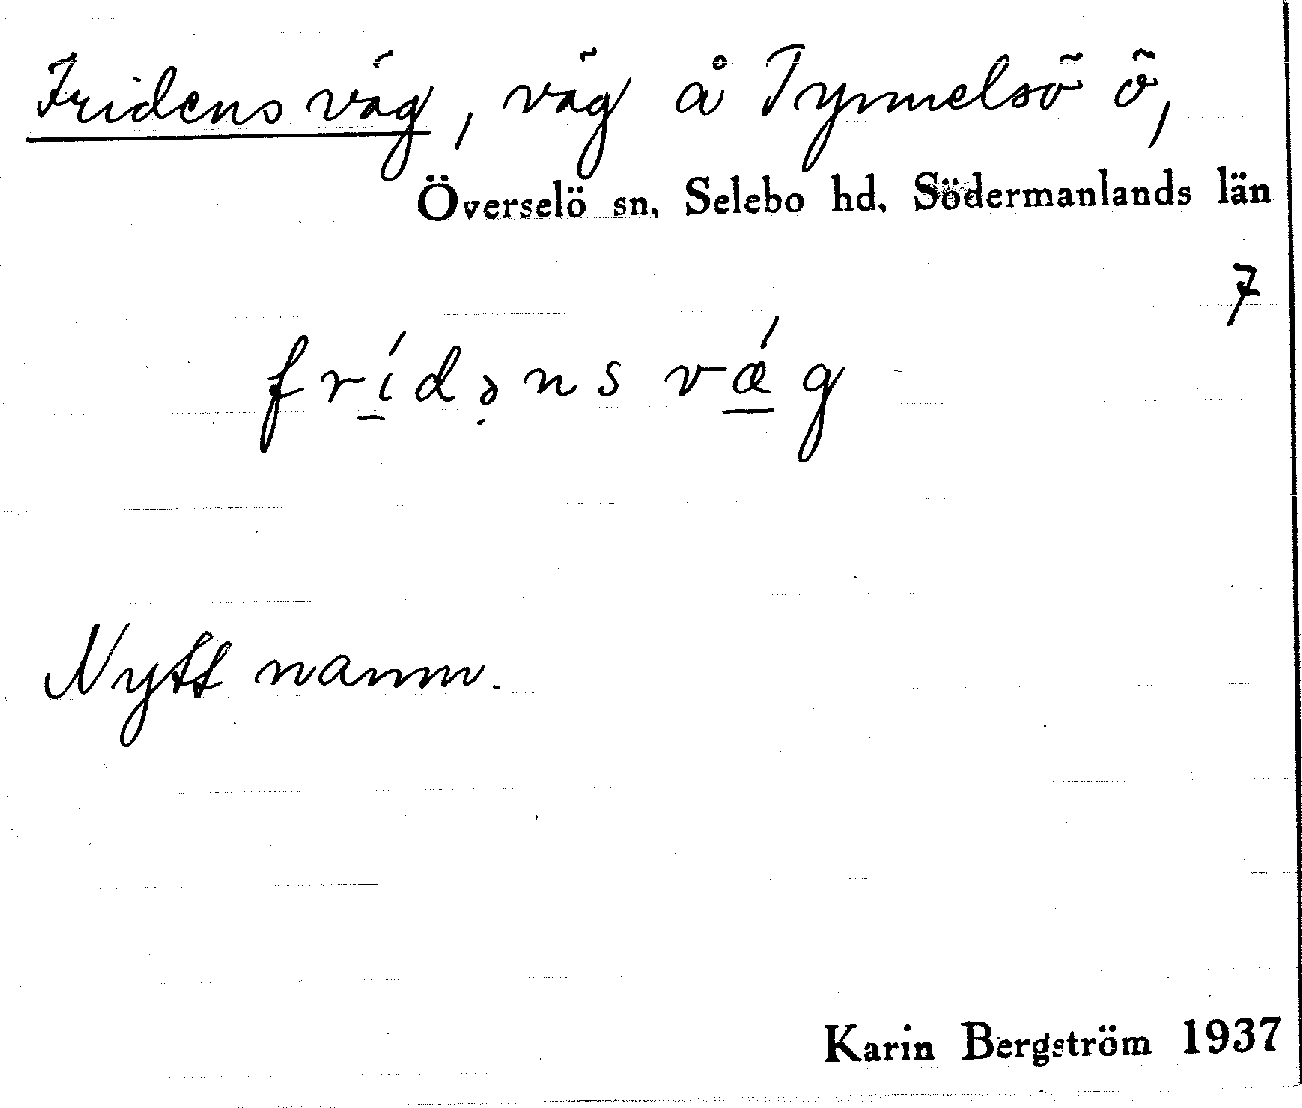 Fridens väg, väg å Tynnelsö ö,
Överselö sn, Selebo hd, Södermanlands län
7
frídə̣ns vǽg
Nytt namn.
Karin Bergström 1937